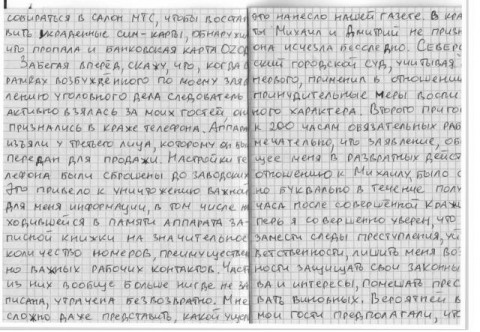 собираться в салон МТС, чтобы восстано
вить украденные сим-карты, обнаружи
что пропала и банковская карта OZO
Забегая вперёд, скажу, что, когда в
рамках возбуждённого по моему заяв
лению уголовного дела следователь
активно взялась за моих гостей, он
признались в краже телефона. Аппарат
изъяли у третьего лица, которому он был
передан для продажи. Настройки те
лефона были сброшены до заводских.
Это привело к уничтожению важной
для меня информации, в том числе на
ходившейся в памяти аппарата за-
писной книжки на значительное
количество номеров, преимуществен
но важных рабочих контактов. Часть
из них вообще больше нигде не за
писана, утрачена безвозвратно. Мне
сложно даже представить, какой ущер
это нанесло нашей газете. В кра
ты Михаил и Дмитрий не призн
она исчезла бесследно. Северо
ский городской суд, учитывая
первого, применил в отношении
принудительные меры воспи
ного характера. Второго приго
к 200 часам обязательных раб
мечательно, что заявление, об
щее меня в развратных дейст
отношению к Михаилу, было
но буквально в течение полу
часа после совершенной кражи
перь я совершенно уверен, что
замести следы преступления, уй
ветственности, лишить меня воз
ности защищать свои законны
ва и интересы, помешать прес
вать виновных. Вероятней в
мои гости предполагали, что